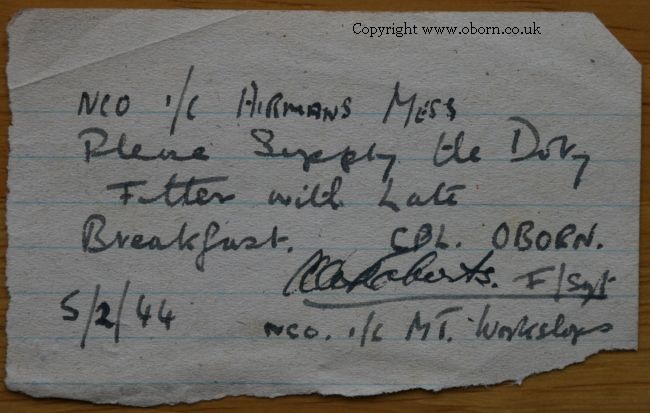 Copyright www.oborn.co.uk
NCO i/c AIRMANS MESS
Please Supply the Duty
Fitter with Late
Breakfast. CPL. OBORN.
Roberts. F/Sgt
5/2/44
NCO. i/c MT. Workshops